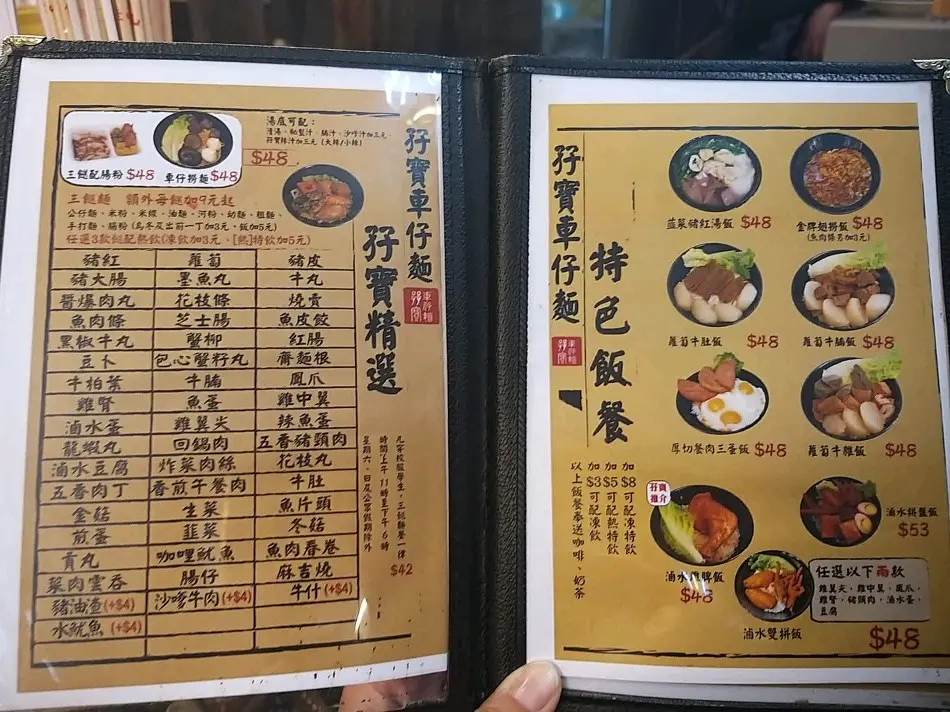 孖寶車仔麵
孖寶精選
湯底可配：
清湯、秘製汁、腩汁、沙嗲汁加三元、
孖寶辣汁加三元 (大辣/小辣)
$48
三餸配腸粉 $48
車仔撈麵 $48
三餸麵 額外每餸加9元起
公仔麵、米粉、米線、油麵、河粉、幼麵、粗麵、
手打麵、腸粉 (烏冬及出前一丁加3元、飯加5元)
任選3款餸配熱飲(凍飲加3元、[熱]特飲加5元)
豬紅 蘿蔔 豬皮
豬大腸 墨魚丸 牛丸
醬爆肉丸 花枝條 燒賣
魚肉條 芝士腸 魚皮餃
黑椒牛丸 蟹柳 紅腸
豆卜 包心蟹籽丸 齋麵根
牛柏葉 牛腩 鳳爪
雞腎 魚蛋 雞中翼
滷水蛋 雞翼尖 辣魚蛋
龍蝦丸 回鍋肉 五香豬頸肉
滷水豆腐 炸菜肉絲 花枝丸
五香肉丁 香煎午餐肉 牛肚
金菇 生菜 魚片頭
煎蛋 韮菜 冬菇
貢丸 咖哩魷魚 魚肉春卷
菜肉雲吞 腸仔 麻吉燒
豬油渣(+$4) 沙嗲牛肉(+$4) 牛什(+$4)
水魷魚(+$4)
凡穿校服學生，三餸麵餐一律
時間：上午11時至下午6時
星期六、日及公眾假期除外
$42
孖寶車仔麵
車仔麵
孖寶
特色飯餐
加$8可配凍特飲
加$5可配熱特飲
加$3可配凍飲
以上飯餐奉送咖啡、奶茶
韮菜豬紅湯飯 $48
金牌翅撈飯 $48
(魚肉條另加3元)
蘿蔔牛肚飯 $48
蘿蔔牛腩飯 $48
厚切餐肉三蛋飯 $48
蘿蔔牛雜飯 $48
孖寶
推介
滷水 脾飯
$48
滷水拼盤飯
$53
滷水雙拼飯
任選以下兩款
雞翼尖，雞中翼，鳳爪，
雞腎，豬頸肉，滷水蛋，
豆腐
$48